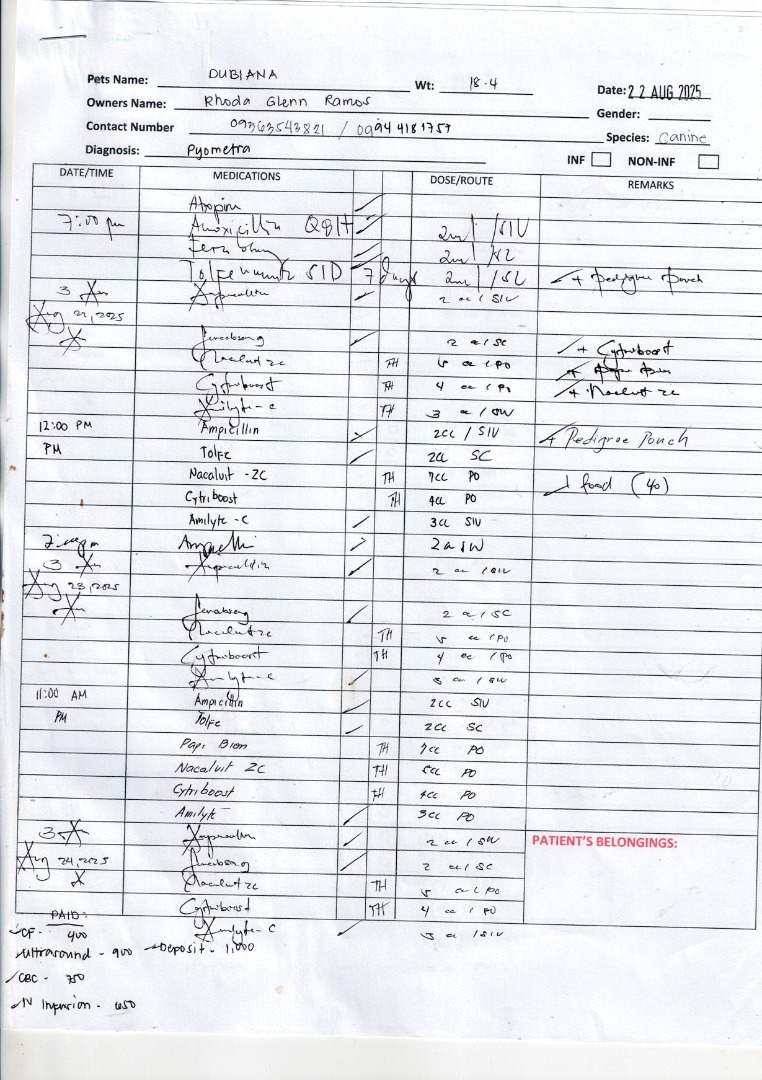 Pets Name: DUBIANA Wt: 18-4 Date: 22 AUG 2025
Owners Name: Rhoda Glenn Ramos Gender:
Contact Number 09363543821 / 09944181757 Species: Canine
Diagnosis: Pyometra INF NON-INF
DATE/TIME MEDICATIONS DOSE/ROUTE REMARKS
7:00 pm Amoxicillin Q8H 2ml / SIV
2ml
SID 7 days 2ml / SC + Pedigree Pouch
3 2 cc / SIV
Aug 22, 2025
2 cc / SC + Cytriboost
Nacalvit zc TH 5 cc / PO
Cytriboost TH 4 cc / PO + Nacalvit zc
Amilyte-c TH 3 cc / SIV
12:00 PM Ampicillin 2cc / SIV + Pedigree Pouch
PM Tolfe 2cc SC
Nacalvit -ZC TH 7cc PO food (40)
Cytriboost TH 4cc PO
Amilyte -C 3cc SIV
2cc SIV
3 2 cc / SIV
Aug 23, 2025
2 cc / SC
Nacalvit zc TH 5 cc / PO
Cytriboost TH 4 cc / PO
Amilyte-c 3 cc / SIV
11:00 AM Ampicillin 2cc SIV
PM Tolfe 2cc SC
Papi Bion TH 7cc PO
Nacalvit ZC TH 5cc PO
Cytriboost TH 4cc PO
Amilyte 3cc PO
3 2 cc / SIV PATIENT'S BELONGINGS:
Aug 24, 2025 2 cc / SC
Nacalvit zc TH 5 cc / PO
Cytriboost TH 4 cc / PO
PAID: Amilyte-C 3 cc / SIV
CF - 400
Ultrasound - 900 Deposit - 1,000
CBC - 750
IV Infusion - 650